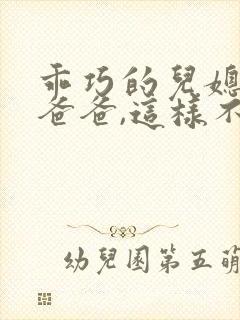 乖巧的兒媳
爸爸,這樣不
幼兒園第五萌